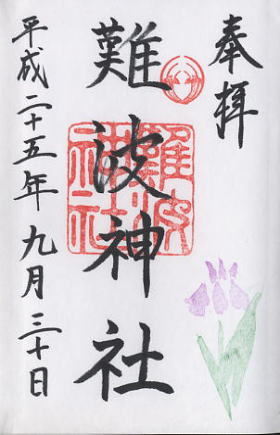 奉拝
難波神社
難波神社
平成二十五年九月三十日